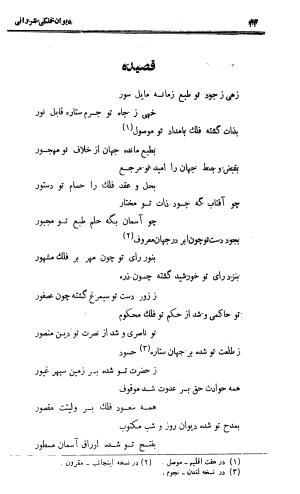 ۴۴ دیوان فلکی شروانی
قصیده
زهی ز جود تو طبع زمانه مایل سور
خهی ز جاه تو جرم ستاره قابل نور
بذات گشته فلک بامداد تو موصول (۱)
بطبع مانده جهان از خلاف تو مهجور
بقبض و بسط جهان را امید تو مرجع
بحل و عقد فلک را حسام تو دستور
چو آفتاب گه جود ذات تو مختار
چو آسمان بگه حلم طبع تو مجبور
بجود دست تو چون ابر در جهان معروف (۲)
بنور رای تو چون مهر بر فلک مشهور
بنزد رای تو خورشید گشته چون ذره
ز زور دست تو سیمرغ گشته چون عصفور
تو حاکمی و شد از حکم تو فلک محکوم
تو ناصری و شد از نصرت تو دین منصور
ز طلعت تو شده بر جهان ستاره (۳) حسود
ز حضرت تو شده بر زمین سپهر غیور
همه حوادث حق بر عدوت شد موقوف
همه سعود فلک بر ولیت مقصور
بمدح تو شده دیوان روز و شب مکتوب
بفتح تو شده اوراق آسمان مسطور
(۱) در هفت اقلیم ـ موصل . (۲) در نسخه اینجانب ـ مقرون .
(۳) در نسخه لندن ـ نجوم .